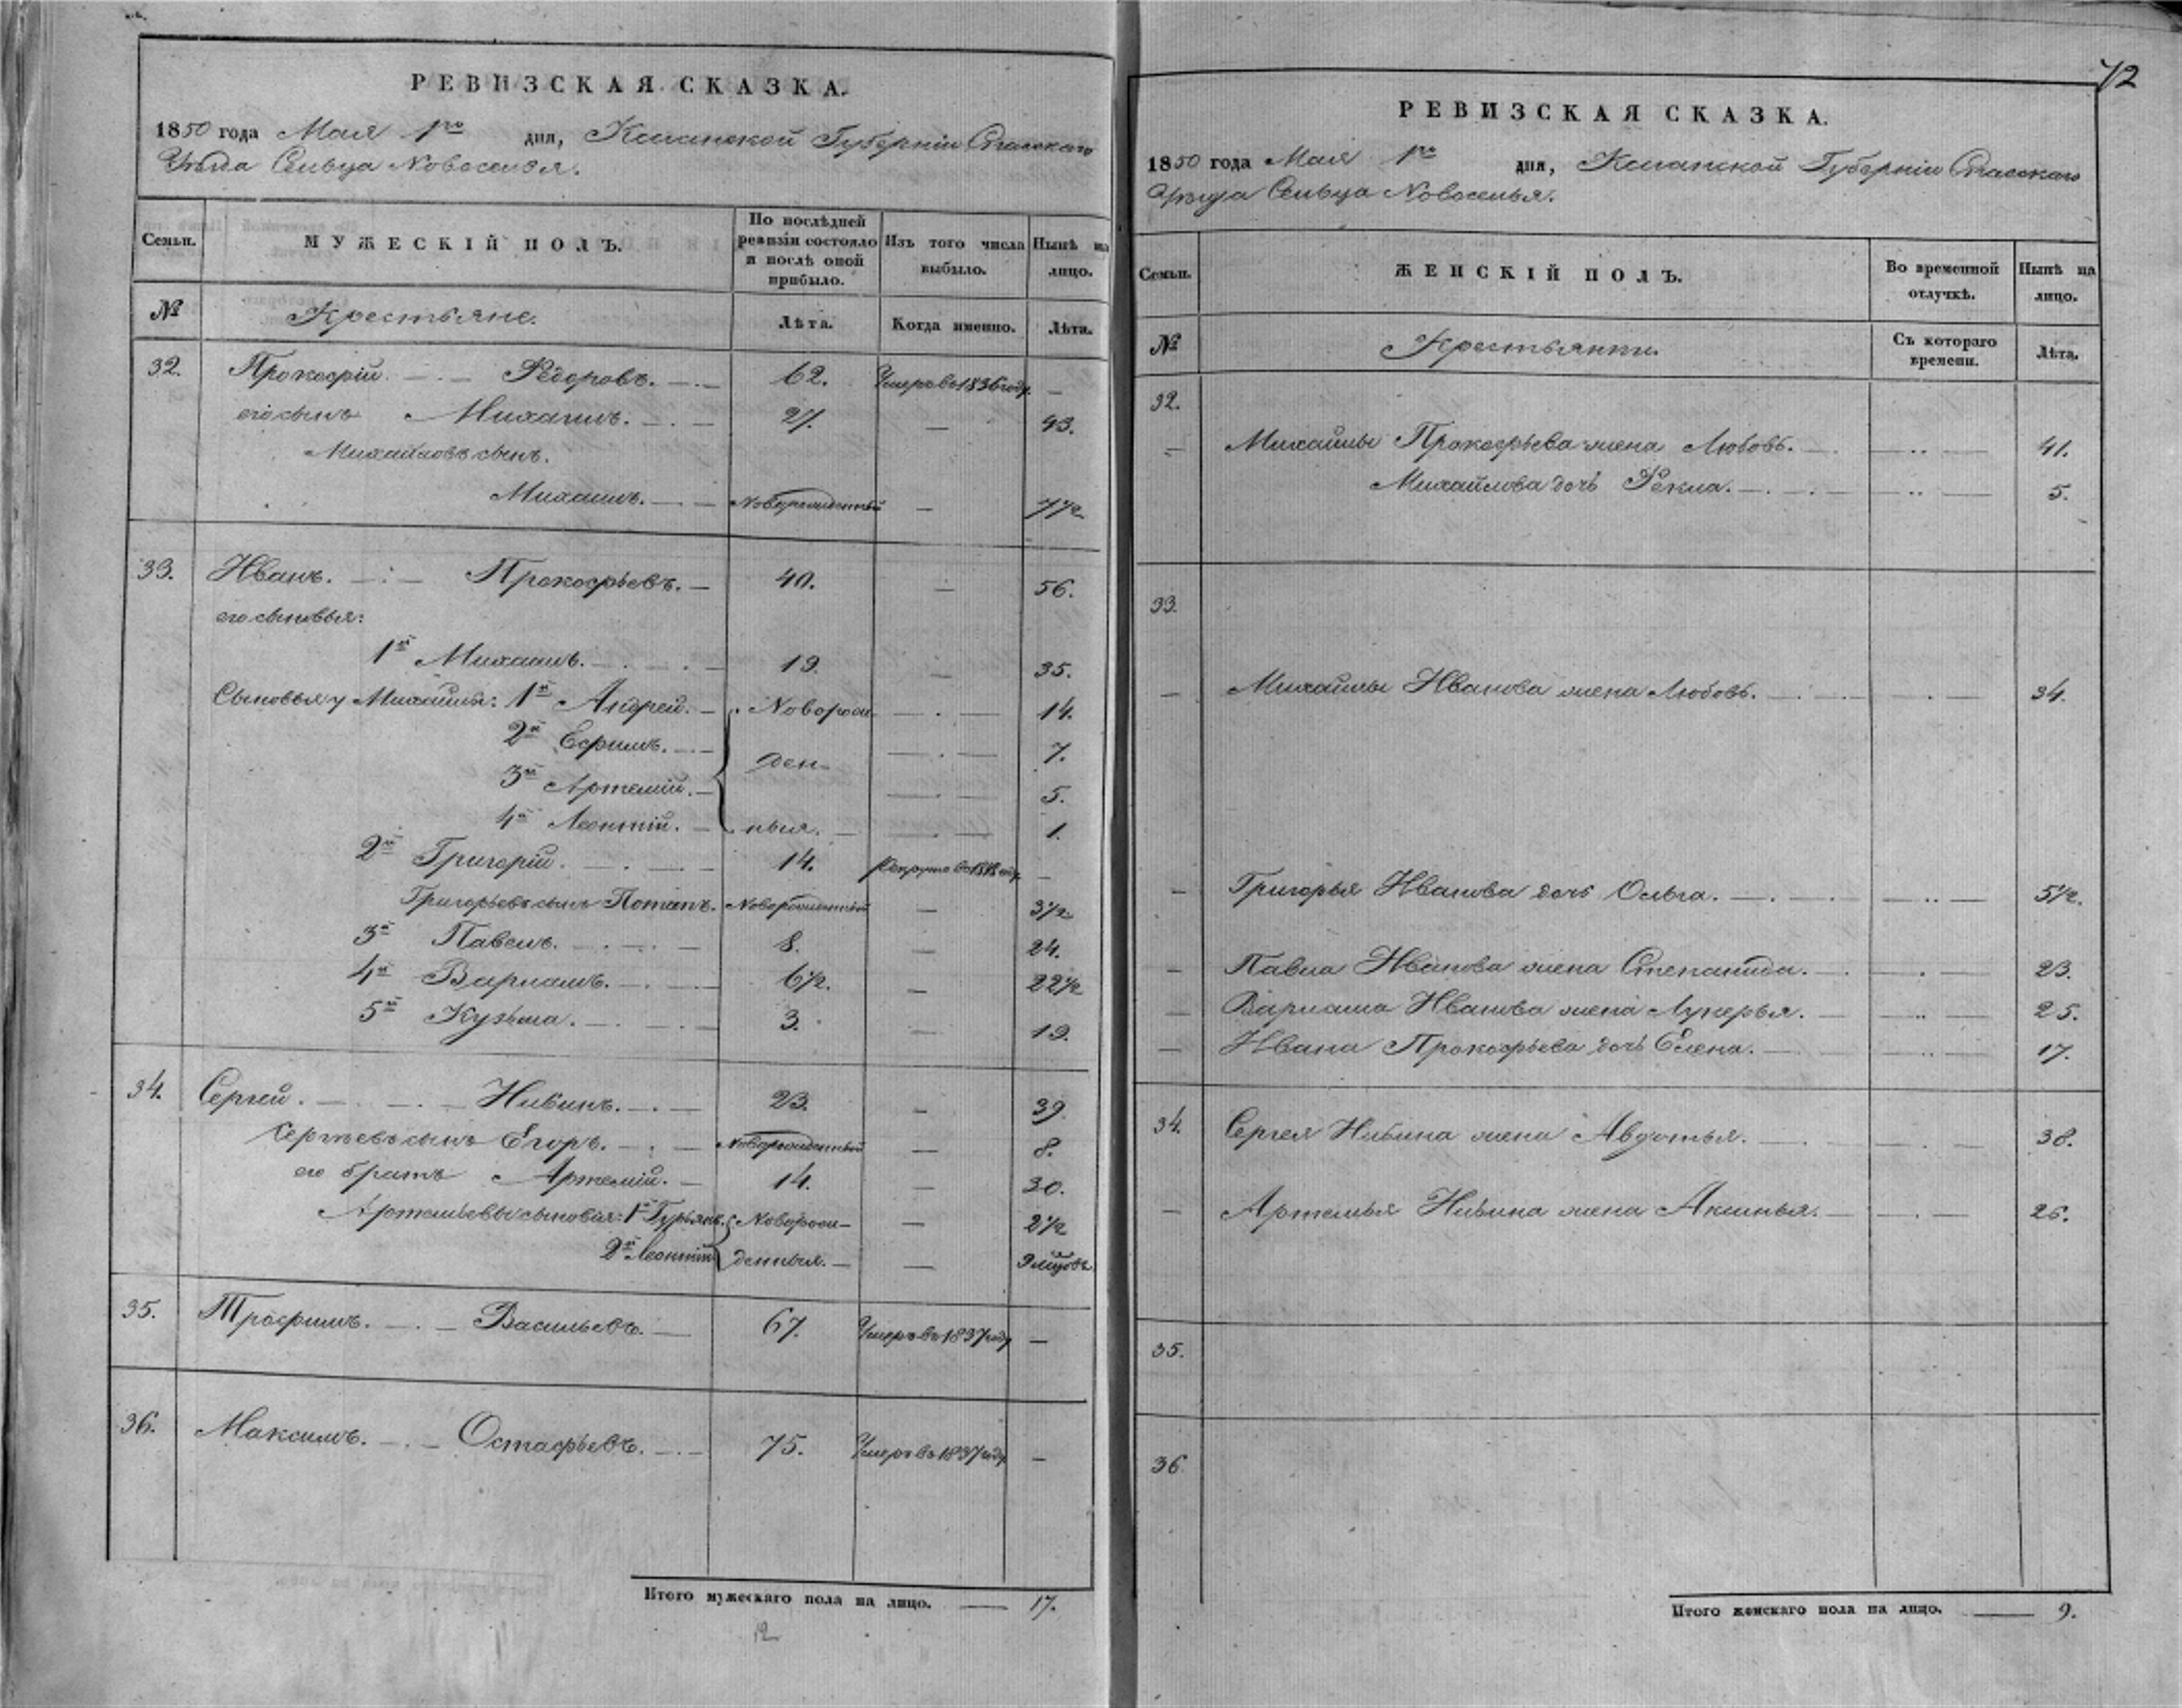 72
РЕВИЗСКАЯ СКАЗКА.
1850 года Мая 1го дня, Казанской Губерніи Спасскаго
Уѣзда Сельца Новоселья.
Семьи.
МУЖЕСКІЙ ПОЛЪ.
По послѣдней ревизіи состояло и послѣ оной прибыло.
Изъ того числа выбыло.
Нынѣ на лицо.
№ Крестьяне. Лѣта. Когда именно. Лѣта.
32. Прокофій Ѳедоровъ. 62. Умеръ въ 1836 году —
его сынъ Михаилъ. 27. — 43.
Михайловъ сынъ.
Михаилъ. Новорожденный — 7 1/2
33. Иванъ. Прокофьевъ. 40. — 56.
его сыновья:
1й Михаилъ. 19. — 35.
Сыновья у Михайлы: 1й Андрей. Новорож — 14.
2й Ефимъ. ден — 7.
3й Артемій. — 5.
4й Леонтій. ныя. — 1.
2й Григорій. 14. году —
Григорьевъ сынъ Потапъ. Новорожденный — 3 1/2
3й Павелъ. 8. — 24.
4й Варламъ. 6 1/2. — 22 1/2
5й Кузьма. 3. — 19.
34. Сергей. Нивинъ. 23. — 39.
Сергѣевъ сынъ Егоръ. Новорожденный — 8.
его братъ Артемій. 14. — 30.
Артемьевы сыновья: 1й Гурьянъ. Новорож- — 2 1/2
2й Леонтій денныя. —
35. Трофимъ. Васильевъ. 67. Умеръ въ 1837 году —
36. Максимъ. Остафьевъ. 75. Умеръ въ 1837 году —
Итого мужескаго пола на лицо. — 17.
12
РЕВИЗСКАЯ СКАЗКА.
1850 года Мая 1го дня, Казанской Губерніи Спасскаго
Уѣзда Сельца Новоселья.
Семьи.
ЖЕНСКІЙ ПОЛЪ.
Во временной отлучкѣ.
Нынѣ на лицо.
№ Крестьянки. Съ котораго времени. Лѣта.
32.
— Михайлы Прокофьева жена Любовь. — 41.
Михайлова дочь Ѳекла. — 5.
33.
— Михайлы Иванова жена Любовь. — 34.
— Григорья Иванова дочь Ольга. — 5 1/2.
— Павла Иванова жена Степанида. — 23.
— Варлама Иванова жена Лукерья. — 25.
— Ивана Прокофьева дочь Елена. — 17.
34. Сергея Нивина жена Авдотья. — 38.
— Артемья Нивина жена Аксинья. — 26.
35.
36.
Итого женскаго пола на лицо. — 9.